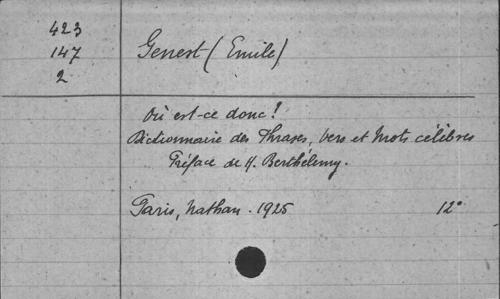 423
147
2
Genest (Emile)
Où est-ce donc!
Dictionnaire des Phrases, Vers et Mots célèbres
Préface de H. Berthélemy.
Paris, Nathan. 1925
12°